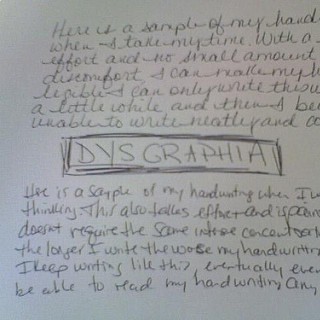 Here is a sample of my hand
when I take my time. With a
effort and no small amount
discomfort, I can make my
legible. I can only write this w
a little while and then I be
unable to write neatly and co
DYSGRAPHIA
Here is a sample of my handwriting when I'm
thinking. This also takes effort and is pain
doesn't require the same intense concentrati
the longer I write the worse my handwritin
I keep writing like this, eventually even
be able to read my handwriting any